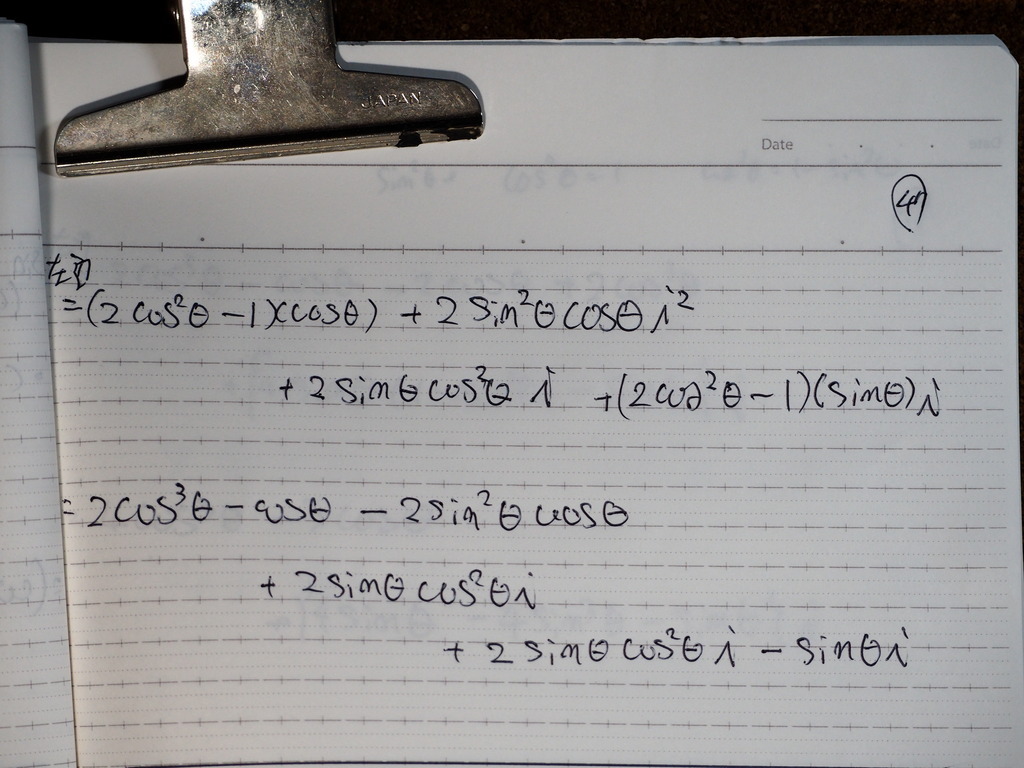 JAPAN
Date
左辺
=(2cos²θ-1)(cosθ) + 2sin²θcosθi²
+ 2sinθcos²θi +(2cos²θ-1)(sinθ)i
= 2cos³θ - cosθ - 2sin²θcosθ
+ 2sinθcos²θi
+ 2sinθcos²θi - sinθi